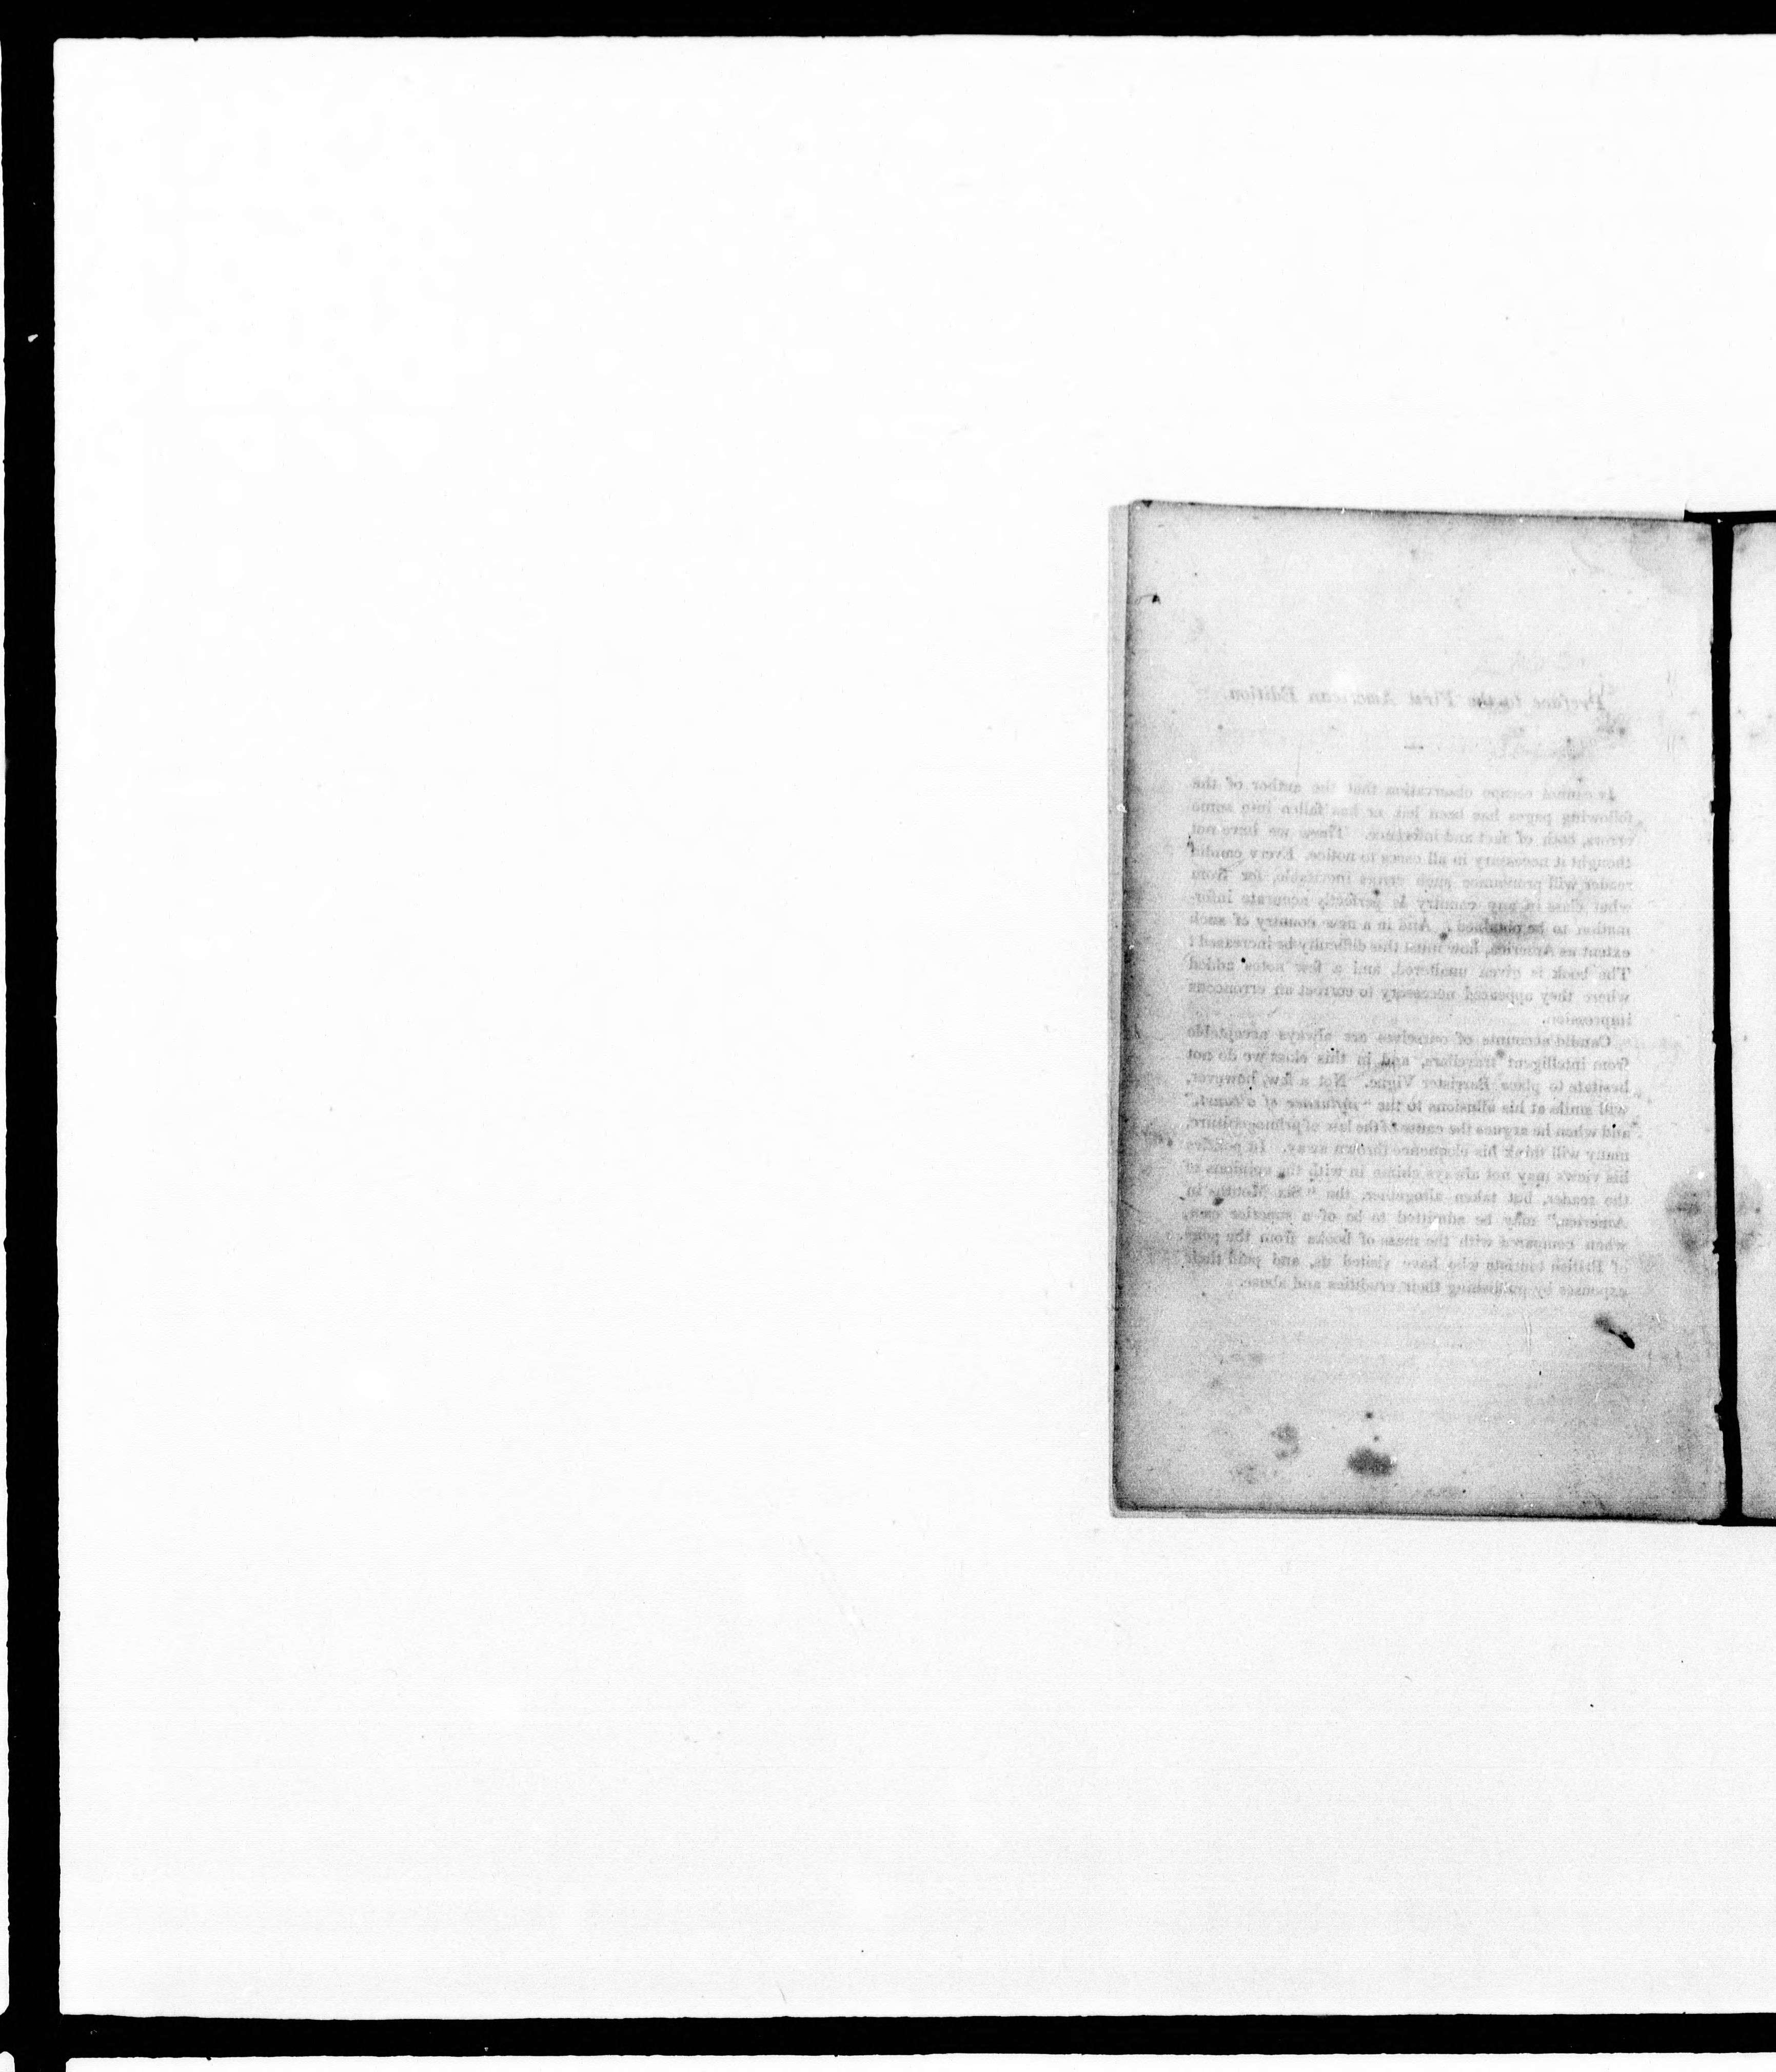 Preface to the First American Edition.
It cannot escape observation that the author of the
following pages has been led, or has fallen into some
errors, both of fact and inference. These we have not
thought it necessary in all cases to notice. Every candid
reader will pronounce such errors inevitable, for from
what class in any country is perfectly accurate infor-
mation to be obtained? And in a new country of such
extent as America, how must this difficulty be increased!
The book is given unaltered, and a few notes added
where they appeared necessary to correct an erroneous
impression.
Candid accounts of ourselves are always acceptable
from intelligent travellers, and in this class we do not
hesitate to place Barrister Vigne. Not a few, however,
will smile at his allusions to the "nuisance of a court,"
and when he argues the cause of the law of primogeniture,
many will think his eloquence thrown away. In politics
his views may not always chime in with the opinions of
the reader, but taken altogether, the "Six Months in
America," may be admitted to be of a superior cast,
when compared with the mass of books from the pens
of British tourists who have visited us, and paid their
expenses by publishing their crudities and abuse.